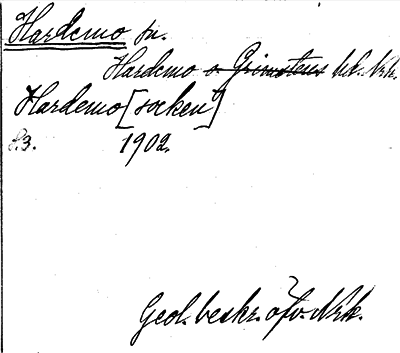 Hardemo sn.
Hardemo o. Grimstens hd. Nrk.
Hardemo [socken]
s. 3. 1902.
Geol. beskr. öfv. Nrk.